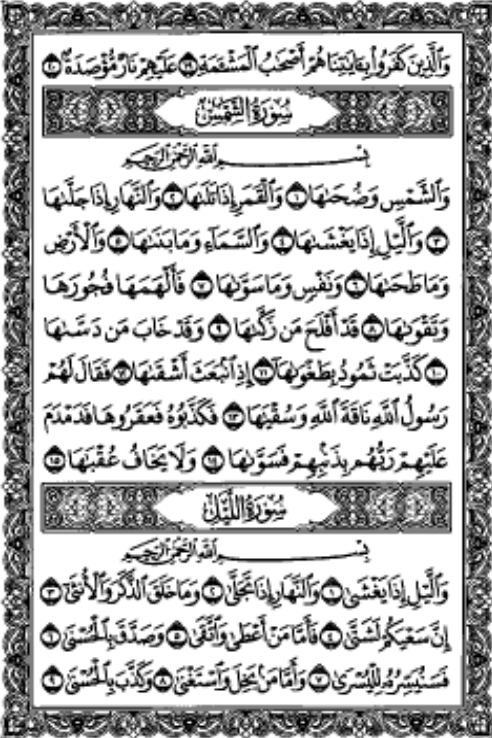 وَٱلَّذِينَ كَفَرُوا۟ بِـَٔايَٰتِنَا هُمْ أَصْحَٰبُ ٱلْمَشْـَٔمَةِ ۝١٩ عَلَيْهِمْ نَارٌ مُّؤْصَدَةٌۢ ۝٢٠
سُورَةُ الشَّمْسِ
بِسْمِ ٱللَّهِ ٱلرَّحْمَٰنِ ٱلرَّحِيمِ
وَٱلشَّمْسِ وَضُحَىٰهَا ۝١ وَٱلْقَمَرِ إِذَا تَلَىٰهَا ۝٢ وَٱلنَّهَارِ إِذَا جَلَّىٰهَا
۝٣ وَٱلَّيْلِ إِذَا يَغْشَىٰهَا ۝٤ وَٱلسَّمَآءِ وَمَا بَنَىٰهَا ۝٥ وَٱلْأَرْضِ
وَمَا طَحَىٰهَا ۝٦ وَنَفْسٍ وَمَا سَوَّىٰهَا ۝٧ فَأَلْهَمَهَا فُجُورَهَا
وَتَقْوَىٰهَا ۝٨ قَدْ أَفْلَحَ مَن زَكَّىٰهَا ۝٩ وَقَدْ خَابَ مَن دَسَّىٰهَا
۝١٠ كَذَّبَتْ ثَمُودُ بِطَغْوَىٰهَآ ۝١١ إِذِ ٱنۢبَعَثَ أَشْقَىٰهَا ۝١٢ فَقَالَ لَهُمْ
رَسُولُ ٱللَّهِ نَاقَةَ ٱللَّهِ وَسُقْيَٰهَا ۝١٣ فَكَذَّبُوهُ فَعَقَرُوهَا فَدَمْدَمَ
عَلَيْهِمْ رَبُّهُم بِذَنۢبِهِمْ فَسَوَّىٰهَا ۝١٤ وَلَا يَخَافُ عُقْبَٰهَا ۝١٥
سُورَةُ اللَّيْلِ
بِسْمِ ٱللَّهِ ٱلرَّحْمَٰنِ ٱلرَّحِيمِ
وَٱلَّيْلِ إِذَا يَغْشَىٰ ۝١ وَٱلنَّهَارِ إِذَا تَجَلَّىٰ ۝٢ وَمَا خَلَقَ ٱلذَّكَرَ وَٱلْأُنثَىٰٓ ۝٣
إِنَّ سَعْيَكُمْ لَشَتَّىٰ ۝٤ فَأَمَّا مَنْ أَعْطَىٰ وَٱتَّقَىٰ ۝٥ وَصَدَّقَ بِٱلْحُسْنَىٰ ۝٦
فَسَنُيَسِّرُهُۥ لِلْيُسْرَىٰ ۝٧ وَأَمَّا مَنۢ بَخِلَ وَٱسْتَغْنَىٰ ۝٨ وَكَذَّبَ بِٱلْحُسْنَىٰ ۝٩